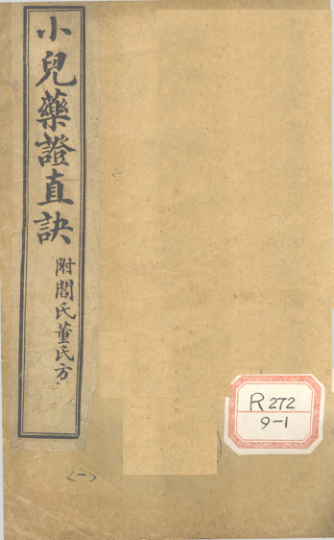 小兒藥證直訣
附閻氏董氏方
<一>
R272
9-1